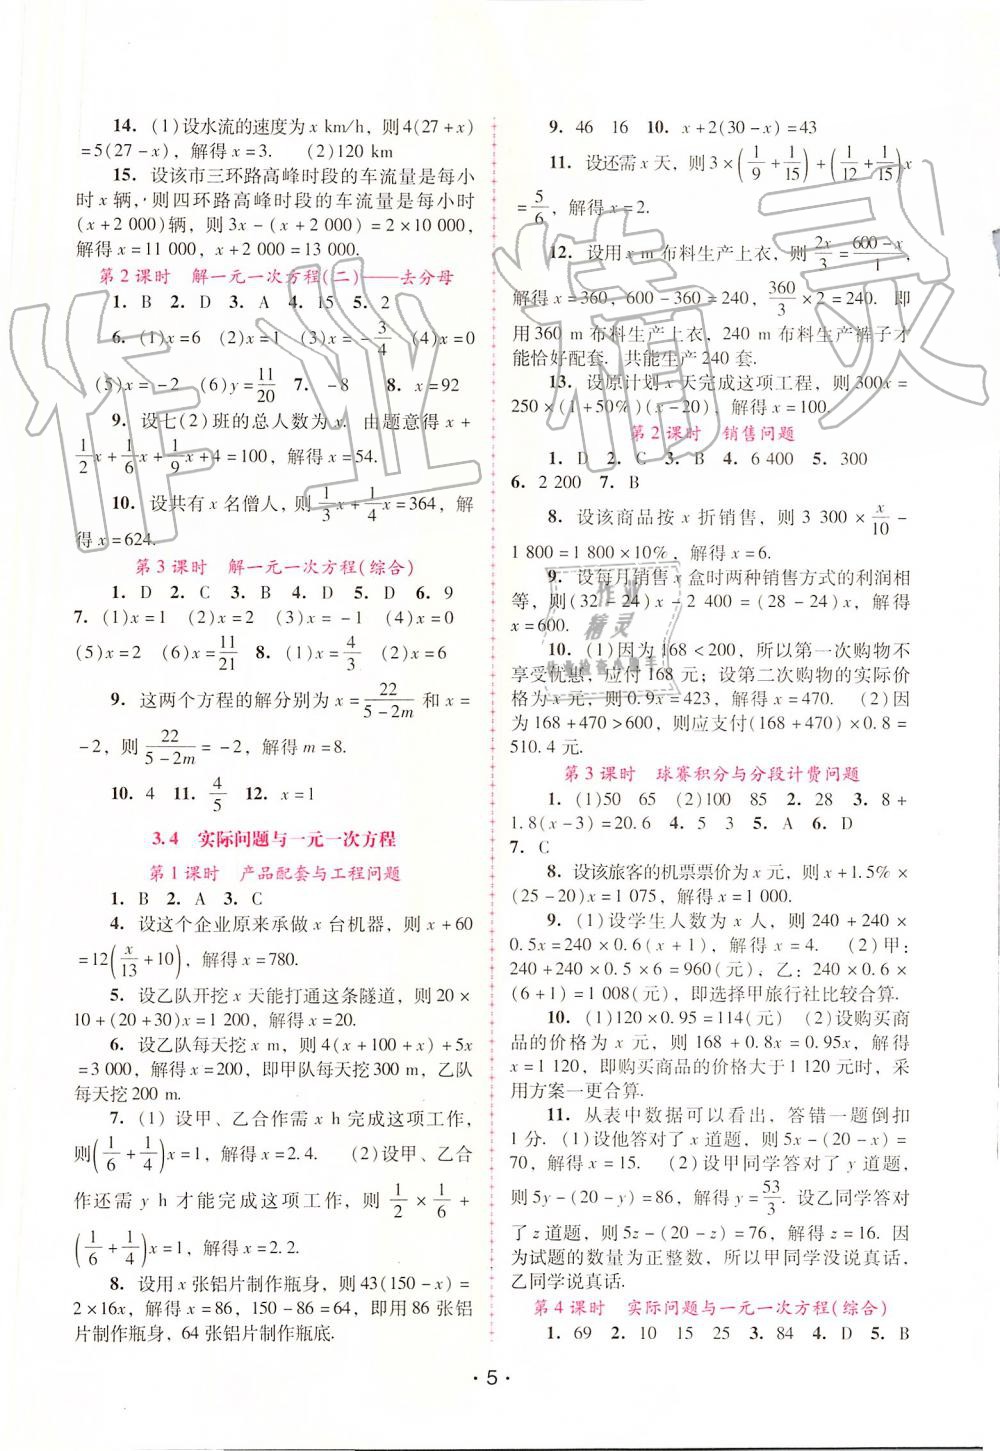 14. (1)设水流的速度为 x km/h，则 4(27+x)
=5(27-x)，解得 x=3. (2)120 km
15. 设该市三环路高峰时段的车流量是每小
时 x 辆，则四环路高峰时段的车流量是每小时
(x+2 000)辆，则 3x-(x+2 000)=2×10 000,
解得 x=11 000，x+2 000=13 000.
第 2 课时 解一元一次方程(二)——去分母
1. B 2. D 3. A 4. 15 5. 2
6. (1)x=6 (2)x=1 (3)x=-3/4 (4)x=0
(5)x=-2 (6)y=11/20 7. -8 8. x=92
9. 设七(2)班的总人数为 x. 由题意得 x+
1/2x+1/6x+1/9x+4=100，解得 x=54.
10. 设共有 x 名僧人，则 1/3x+1/4x=364，解
得 x=624.
第 3 课时 解一元一次方程(综合)
1. D 2. C 3. A 4. D 5. D 6. 9
7. (1)x=1 (2)x=1 (3)x=-1 (4)x=0
(5)x=2 (6)x=11/21 8. (1)x=4/3 (2)x=6
9. 这两个方程的解分别为 x=22/(5-2m) 和 x=
-2，则 22/(5-2m)=-2，解得 m=8.
10. 4 11. 4/5 12. x=1
3.4 实际问题与一元一次方程
第 1 课时 产品配套与工程问题
1. B 2. A 3. C
4. 设这个企业原来承做 x 台机器，则 x+60
=12(x/13+10)，解得 x=780.
5. 设乙队开挖 x 天能打通这条隧道，则 20×
10+(20+30)x=1 200，解得 x=20.
6. 设乙队每天挖 x m，则 4(x+100+x)+5x
=3 000，解得 x=200，即甲队每天挖 300 m，乙队
每天挖 200 m.
7. (1)设甲、乙合作需 x h 完成这项工作，
则(1/6+1/4)x=1，解得 x=2.4. (2)设甲、乙合
作还需 y h 才能完成这项工作，则 1/2×1/6+
(1/6+1/4)x=1，解得 x=2.2.
8. 设用 x 张铝片制作瓶身，则 43(150-x)=
2×16x，解得 x=86，150-86=64，即用 86 张铝
片制作瓶身，64 张铝片制作瓶底.
9. 46 16 10. x+2(30-x)=43
11. 设还需 x 天，则 3×(1/9+1/15)+(1/12+1/15)x
=5/6，解得 x=2.
12. 设用 x m 布料生产上衣，则 2x/3=(600-x)/1，
解得 x=360，600-360=240，360/3×2=240. 即
用 360 m 布料生产上衣，240 m 布料生产裤子才
能恰好配套. 共能生产 240 套.
13. 设原计划 x 天完成这项工程，则 300x=
250×(1+50%)(x-20)，解得 x=100.
第 2 课时 销售问题
1. D 2. C 3. B 4. 6 400 5. 300
6. 2 200 7. B
8. 设该商品按 x 折销售，则 3 300×x/10-
1 800=1 800×10%，解得 x=6.
9. 设每月销售 x 盒时两种销售方式的利润相
等，则(32-24)x-2 400=(28-24)x，解得
x=600.
10. (1)因为 168<200，所以第一次购物不
享受优惠，应付 168 元；设第二次购物的实际价
格为 x 元，则 0.9x=423，解得 x=470. (2)因
为 168+470>600，则应支付(168+470)×0.8=
510.4 元.
第 3 课时 球赛积分与分段计费问题
1. (1)50 65 (2)100 85 2. 28 3. 8+
1.8(x-3)=20.6 4. 5 3 5. A 6. D
7. C
8. 设该旅客的机票票价为 x 元，则 x+1.5%×
(25-20)x=1 075，解得 x=1 000.
9. (1)设学生人数为 x 人，则 240+240×
0.5x=240×0.6(x+1)，解得 x=4. (2)甲：
240+240×0.5×6=960(元)，乙：240×0.6×
(6+1)=1 008(元)，即选择甲旅行社比较合算.
10. (1)120×0.95=114(元) (2)设购买商
品的价格为 x 元，则 168+0.8x=0.95x，解得
x=1 120，即购买商品的价格大于 1 120 元时，采
用方案一更合算.
11. 从表中数据可以看出，答错一题倒扣
1 分. (1)设他答对了 x 道题，则 5x-(20-x)=
70，解得 x=15. (2)设甲同学答对了 y 道题，
则 5y-(20-y)=86，解得 y=53/3. 设乙同学答对
了 z 道题，则 5z-(20-z)=76，解得 z=16. 因
为试题的数量为正整数，所以甲同学没说真话，
乙同学说真话.
第 4 课时 实际问题与一元一次方程(综合)
1. 69 2. 10 15 25 3. 84 4. D 5. B
· 5 ·
作业精灵
作业
精灵